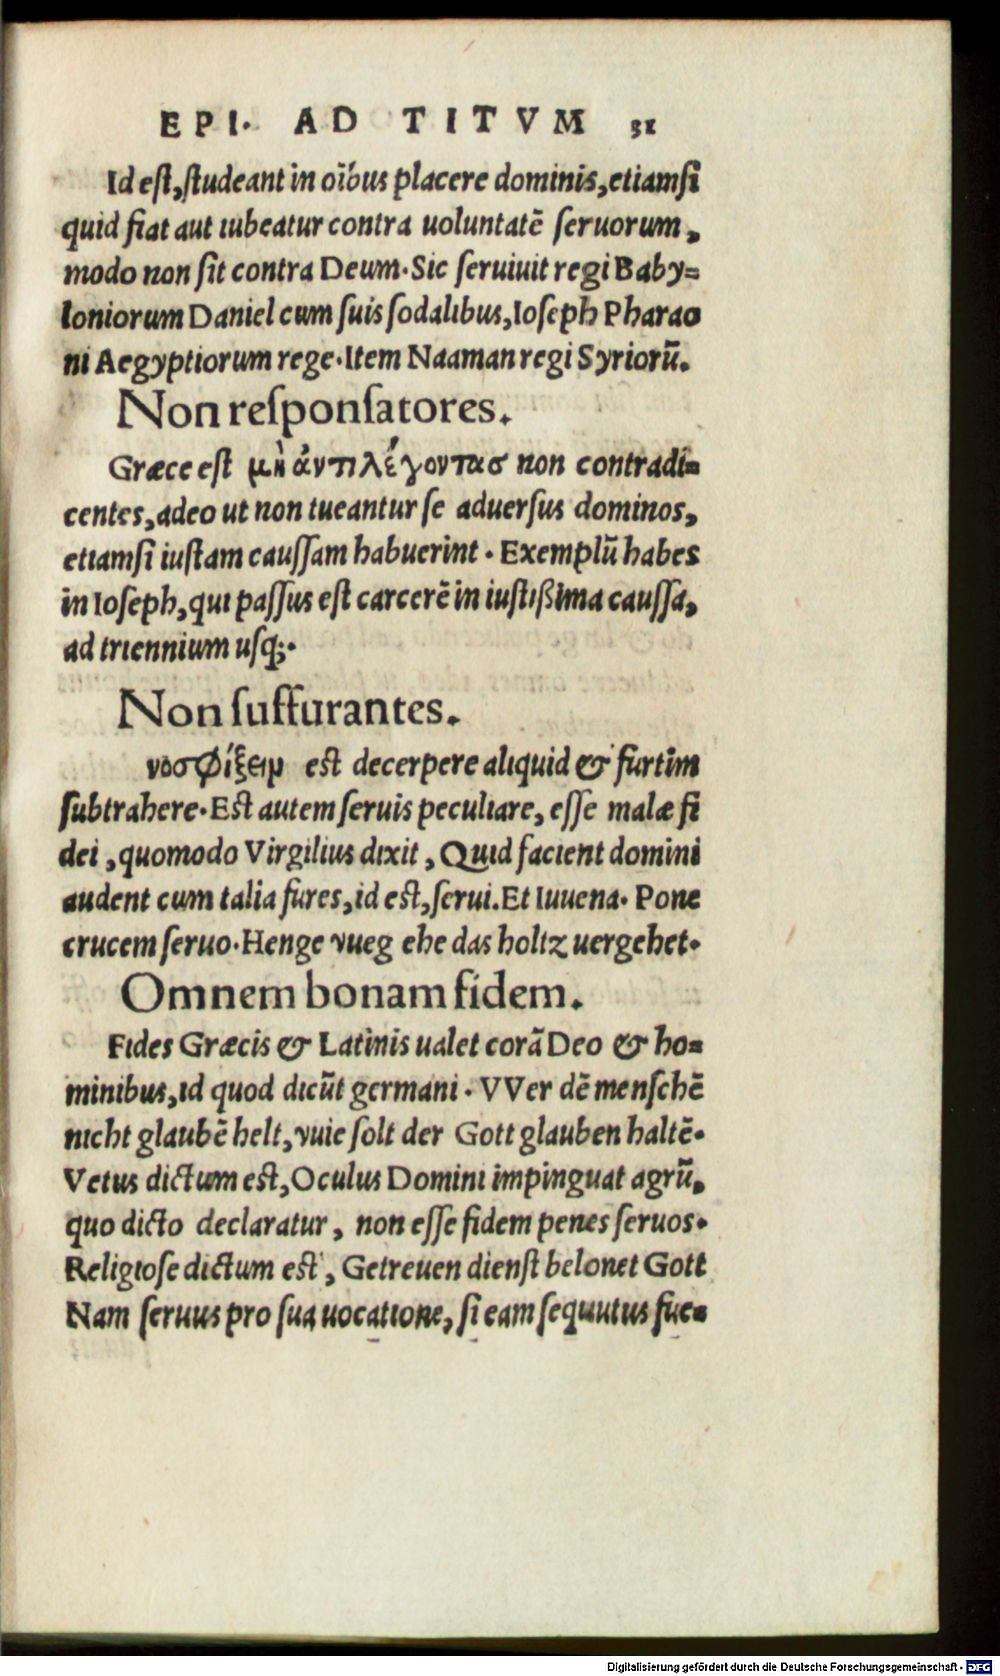 EPI. AD TITVM 31
Id est, studeant in oĩbus placere dominis, etiamsi
quid fiat aut iubeatur contra uoluntatẽ seruorum,
modo non sit contra Deum. Sic seruiuit regi Baby=
loniorum Daniel cum suis sodalibus, Ioseph Pharao
ni Aegyptiorum rege. Item Naaman regi Syriorũ.
Non responsatores.
Græce est μὴ ἀντιλέγοντασ non contradi=
centes, adeo ut non tueantur se aduersus dominos,
etiamsi iustam caussam habuerint. Exemplũ habes
in Ioseph, qui passus est carcerẽ in iustißima caussa,
ad triennium usq;.
Non suffurantes.
νοσφίξειν est decerpere aliquid & furtim
subtrahere. Est autem seruis peculiare, esse malæ fi
dei, quomodo Virgilius dixit, Quid facient domini
audent cum talia fures, id est, serui. Et Iuuena. Pone
crucem seruo. Henge vueg ehe das holtz uergehet.
Omnem bonam fidem.
Fides Græcis & Latinis ualet corã Deo & ho=
minibus, id quod dicũt germani. VVer dẽ menschẽ
nicht glaubẽ helt, vuie solt der Gott glauben haltẽ.
Vetus dictum est, Oculus Domini impinguat agrũ,
quo dicto declaratur, non esse fidem penes seruos.
Religiose dictum est, Getreuen dienst belonet Gott
Nam seruus pro sua uocatione, si eam sequutus fue=
Digitalisierung gefördert durch die Deutsche Forschungsgemeinschaft - DFG